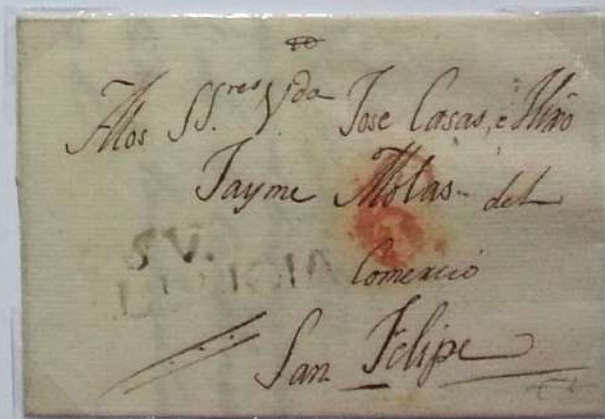 Alos SS.res V.da Jose Casas, e Hixo
Jayme Molas del
Comercio
San Felipe